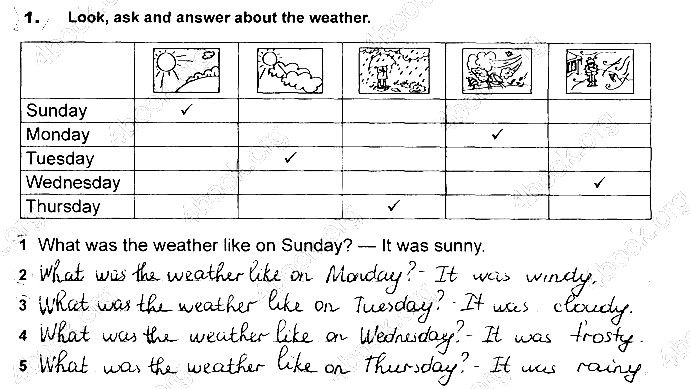 1. Look, ask and answer about the weather.
Sunday ✓
Monday ✓
Tuesday ✓
Wednesday ✓
Thursday ✓
1 What was the weather like on Sunday? — It was sunny.
2 What was the weather like on Monday? - It was windy.
3 What was the weather like on Tuesday? - It was cloudy.
4 What was the weather like on Wednesday? - It was frosty.
5 What was the weather like on Thursday? - It was rainy